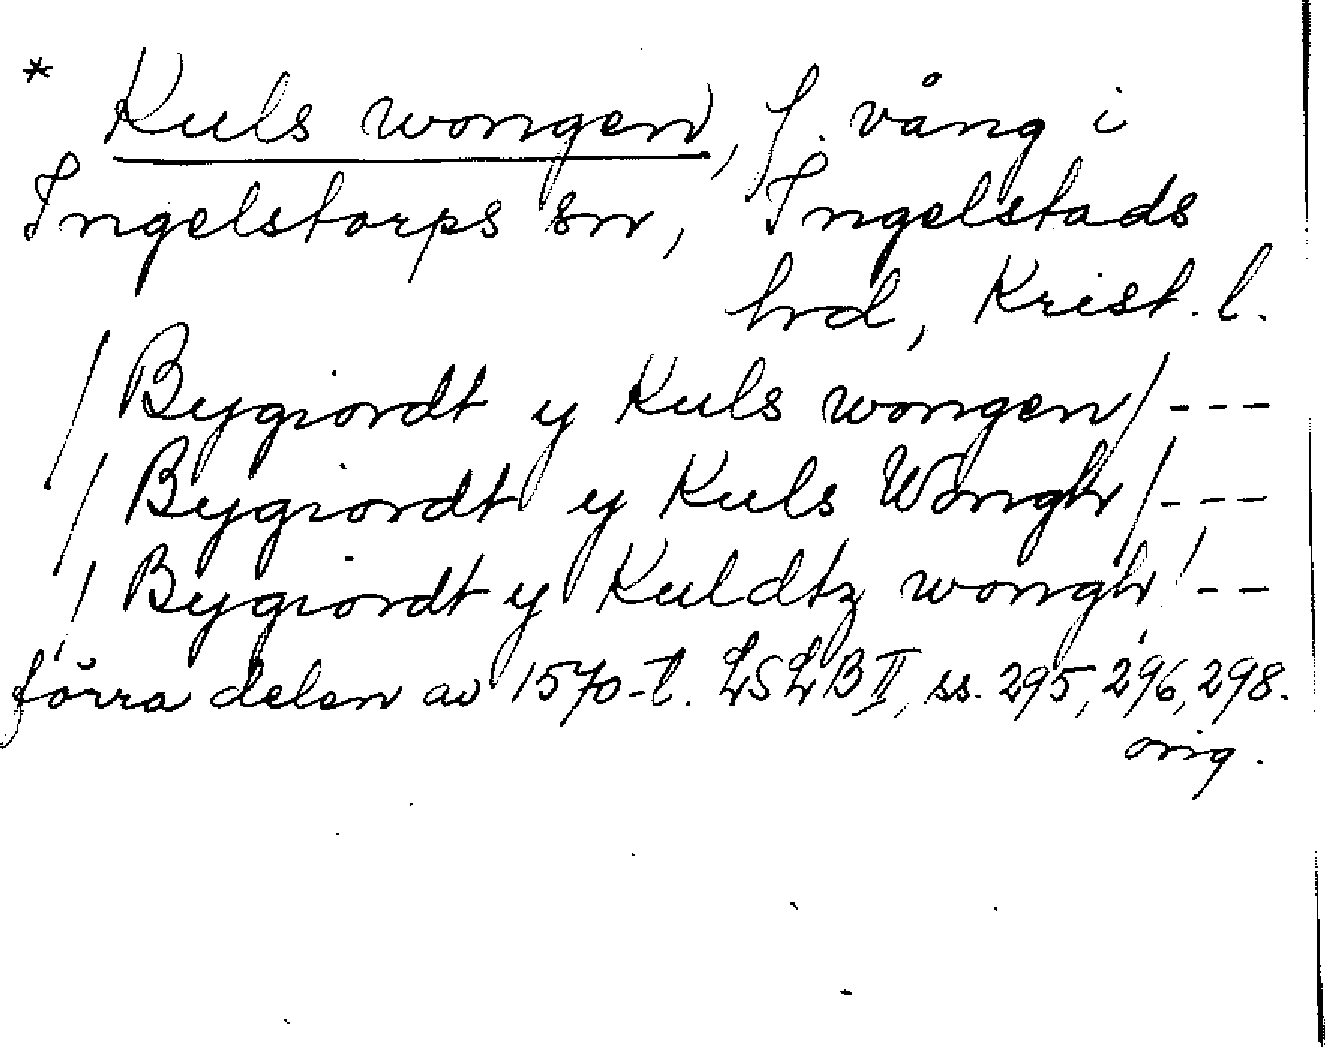 * Kuls wongen, f. vång i
Ingelstorps sn, Ingelstads
hrd, Krist. l.
/Bygiordt y Kuls wongen/---
/Bygiordt y Kuls Wongh/---
/Bygiordt y Kuldtz wongh/--
förra delen av 1570-t. LSLB II, ss. 295, 296, 298.
orig.